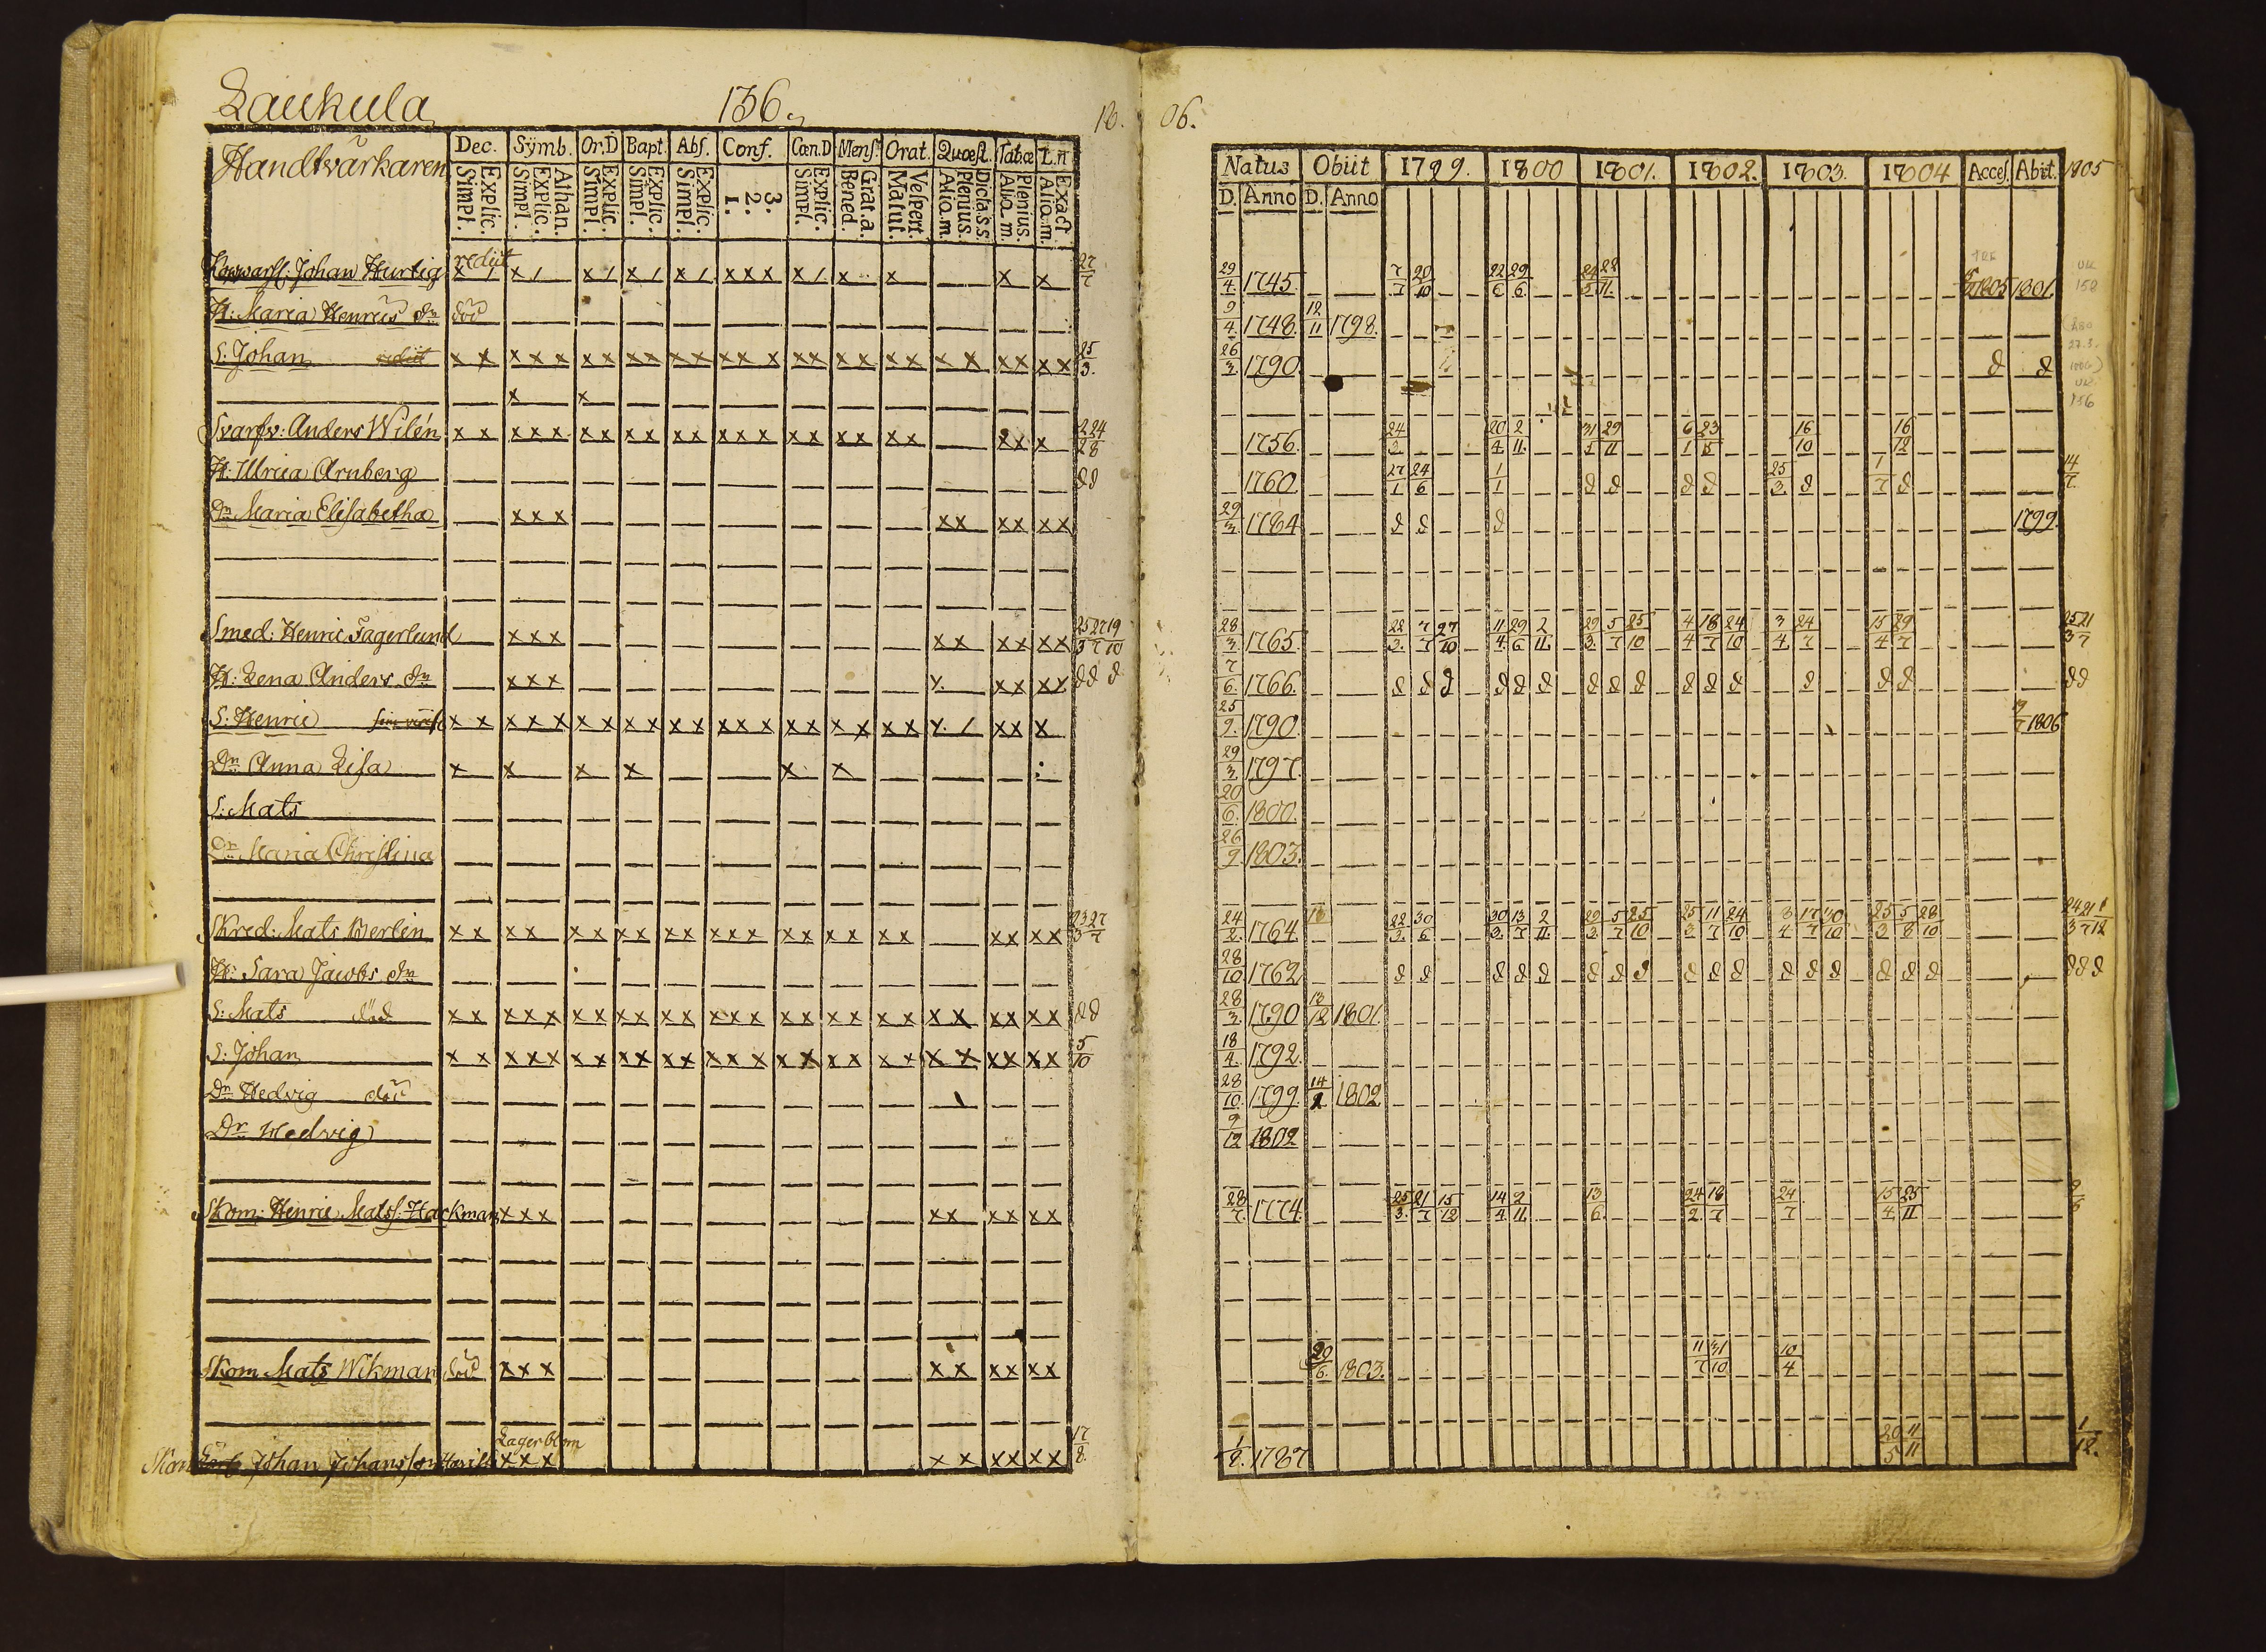 Laukula
136.
18.
06.
Handtvärkaren
Dec. Symb. Or.D Bapt. Abs. Conf. Cœn.D Mens. Orat. Quœst. Tab.œ L.n
Explic. Simpl. Athan. Explic. Simpl. Explic. Simpl. Explic. Simpl. Explic. Simpl. 3. 2. 1. Explic. Simpl. Grat.a. Bened. Vespert. Matut. Dicta.s.s. Plenius. Aliq.m. Plenius. Aliq.m. Exact Aliq.m.
Natus Obiit 1799. 1800 1801. 1802. 1803. 1804 Acces. Abiit. 1805
D. Anno D. Anno
Johan Hurtig rediit x / x / x / x / x / x x x x / x x x x 27/7 29/4. 1745. 7/7 20/10 22/6 29/6 1805 1801.
H: Maria Henrics dr död 9/4. 1748. 12/11 1798.
S: Johan x x x x x x x x x x x x x x x x x x x x x x x x x x x 25/3. 26/3. 1790.
x x
Svarfv: Anders Wilén x x x x x x x x x x x x x x x x x x x x x x x 1756. 24/3. 20/4 2/11. 31/5 29/11 6/1 23/5 16/10 16/12
H: Ulrica Arnberg d d 1760. 27/1 24/6 1/1 d d d d 25/3. d 1/7 d 14/7.
Dr Maria Elisabetha x x x x x x x x x 29/3. 1784 d d d 1799.
Smed: Henric Fagerlund x x x x x x x x x 25/3 27/7 19/10 28/3. 1765. 22/3. 7/7 27/10 11/4. 29/6 2/11. 29/3. 5/7 25/10 4/4 18/7 24/10 3/4. 24/7 15/4 29/7 25/3 21/7
H: Lena Anders dr x x x x. x x x x d d d 7/6. 1766. d d d d d d d d d d d d d d d d d
S: Henric x x x x x x x x x x x x x x x x x x x x x. / x x x 25/9. 1790. 1806
Dr Anna Lisa x x x x x x 29/3. 1797.
S: Mats 20/6. 1800.
Dr Maria Christina 26/9 1803.
Skred: Mats Berlin x x x x x x x x x x x x x x x x x x x x x x x 23/3 27/7 24/2. 1764. 22/3. 30/6 30/3. 13/7 2/11. 29/3. 5/7 25/10 25/3 11/7 24/10 3/4 17/7 30/10 25/3 5/8 28/10
H: Sara Jacobs dr 28/10. 1762. d d d d d d d d d d d d d d d d d d d d
S: Mats död x x x x x x x x x x x x x x x x x x x x x x x x x x d d 28/3. 1790 13/12 1801.
S: Johan x x x x x x x x x x x x x x x x x x x x x x x x x x 5/10 18/4. 1792.
Dr Hedvig död 28/10. 1799. 14/ 1802.
Dr Hedvig 9/12 1802
Skom: Henric Matss: Hackman x x x x x x x x x 28/7. 1774. 25/3. 21/7 15/12 14/4. 2/11. 13/6. 24/2. 18/7 24/7 15/4. 25/11
Skom Mats Wikman död x x x x x x x x x 29/6. 1803. 11/7 31/10 10/4
Lagerblom
Skom Johan Johansson x x x x x x x x x 17/8. 1787 20/5 11/11 1/12.